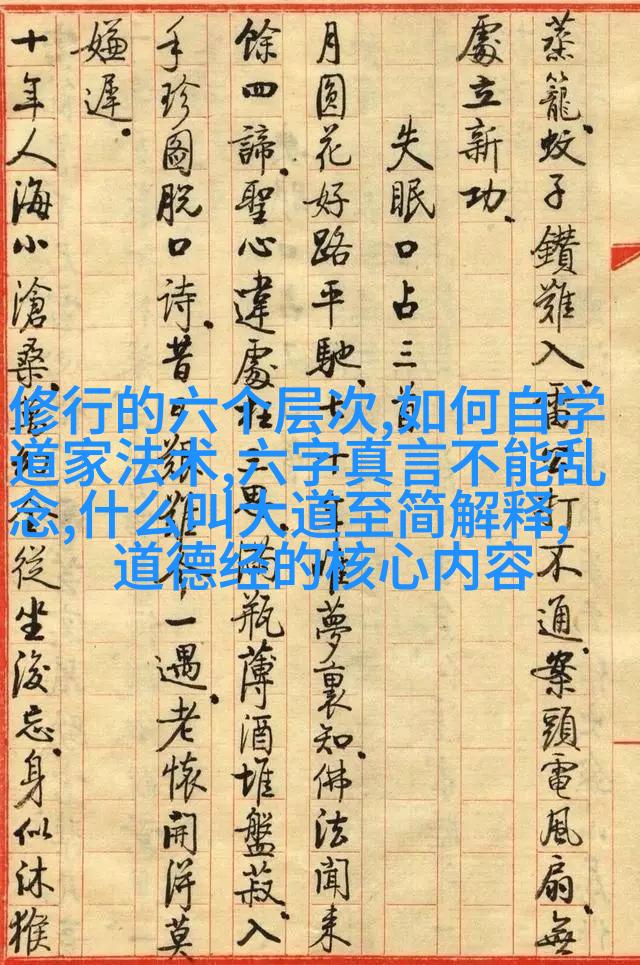 蒸籠。蚊子鑽難入。雷公打不通。案頭電風扇。無
處立新功。
失眠口占三首
月圓花好路平馳。七十年唯夢裏知。佛法聞來
餘四諦。聖心違處滿瓶薄酒堆盤菽。入
手珍圖脫口詩。昔艱難一遇。老懷開得莫
嫌遲。
十年人海小滄桑。從坐後忘。身似沐猴
修行的六个层次,如何自学
道家法术,六字真言不能乱
念,什么叫大道至简解释,
道德经的核心内容